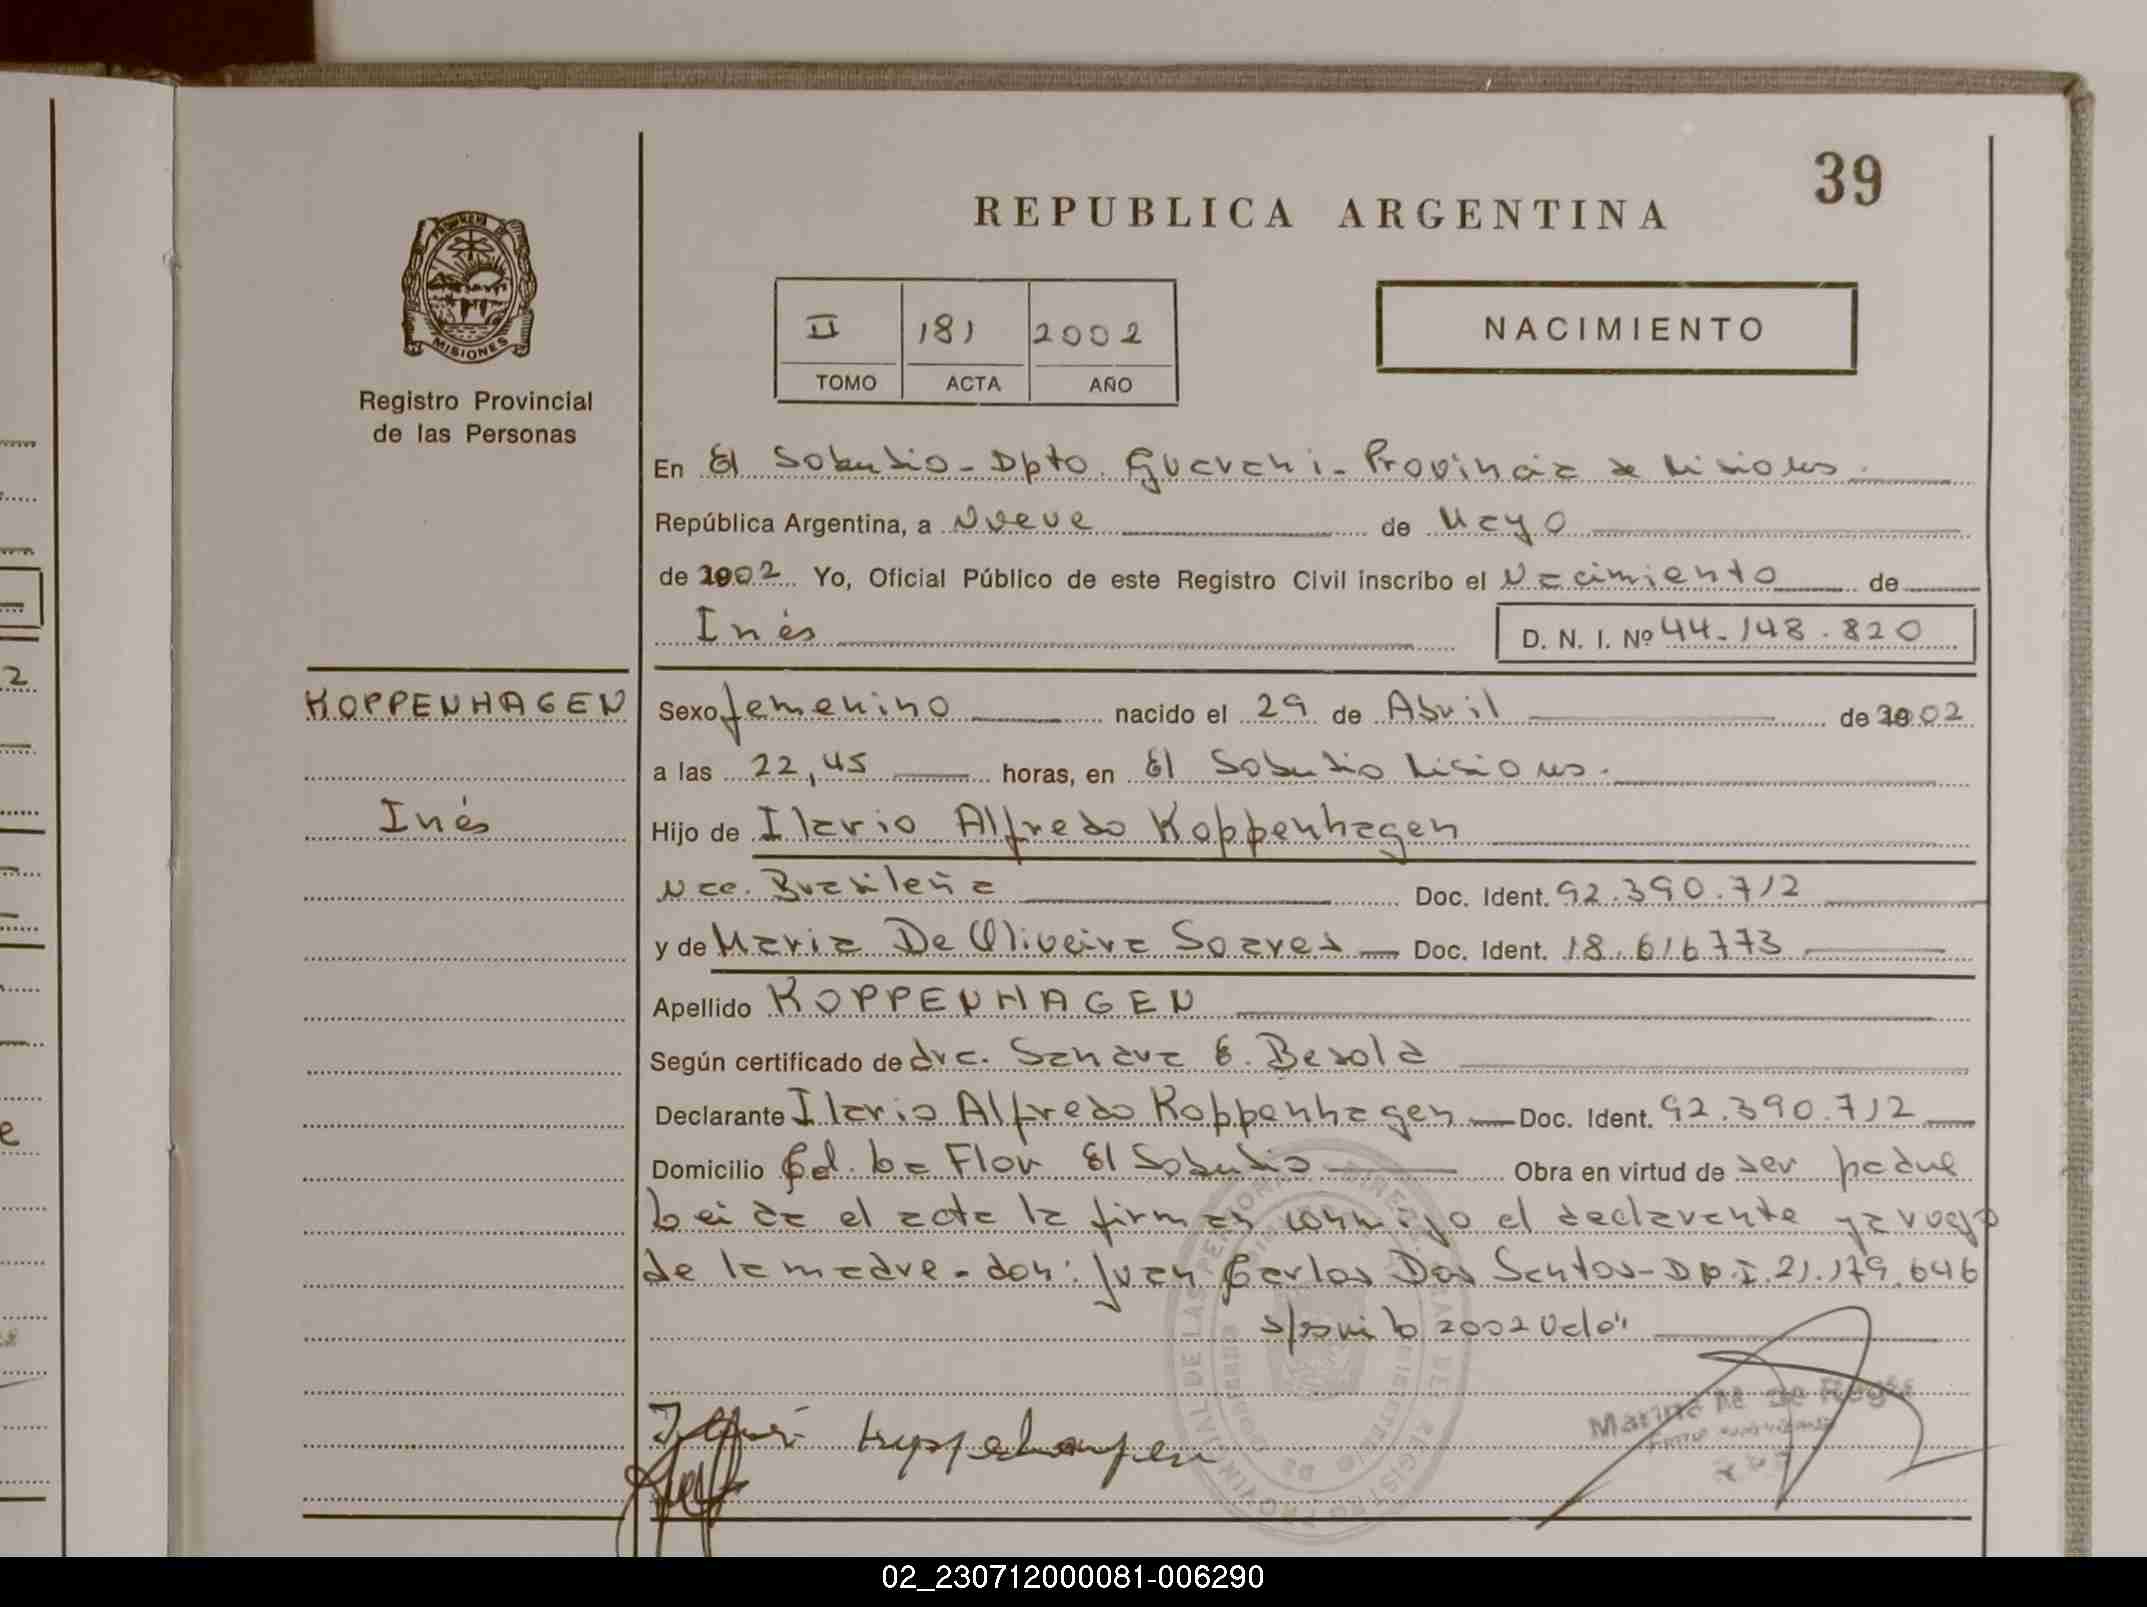 39
REPUBLICA ARGENTINA
PROVINCIA DE
MISIONES
Registro Provincial
de las Personas
II 181 2002
TOMO ACTA AÑO
NACIMIENTO
En El Soberbio - Dpto. Guarani - Provincia de Misiones.
República Argentina, a Nueve de Mayo
de 2002 Yo, Oficial Público de este Registro Civil inscribo el Nacimiento de
Inés D. N. I. Nº 44.148.820
KOPPENHAGEN
Inés
Sexo femenino nacido el 29 de Abril de 2002
a las 22,45 horas, en El Soberbio Misiones.
Hijo de Ilario Alfredo Koppenhagen
Nac. Brasileña Doc. Ident. 92.390.712
y de Maria De Oliveira Soares Doc. Ident. 18.616773
Apellido KOPPENHAGEN
Según certificado de dra. Sandra E.
Declarante Ilario Alfredo Koppenhagen Doc. Ident. 92.390.712
Domicilio Col. La Flor El Soberbio Obra en virtud de ser padre
Leida el acta la firman conmigo el declarante y a ruego
de la madre - don: Juan Carlos Dos Santos - D.N.I. 21.179.646
2002 Vale"
Marina M. De
02_230712000081-006290